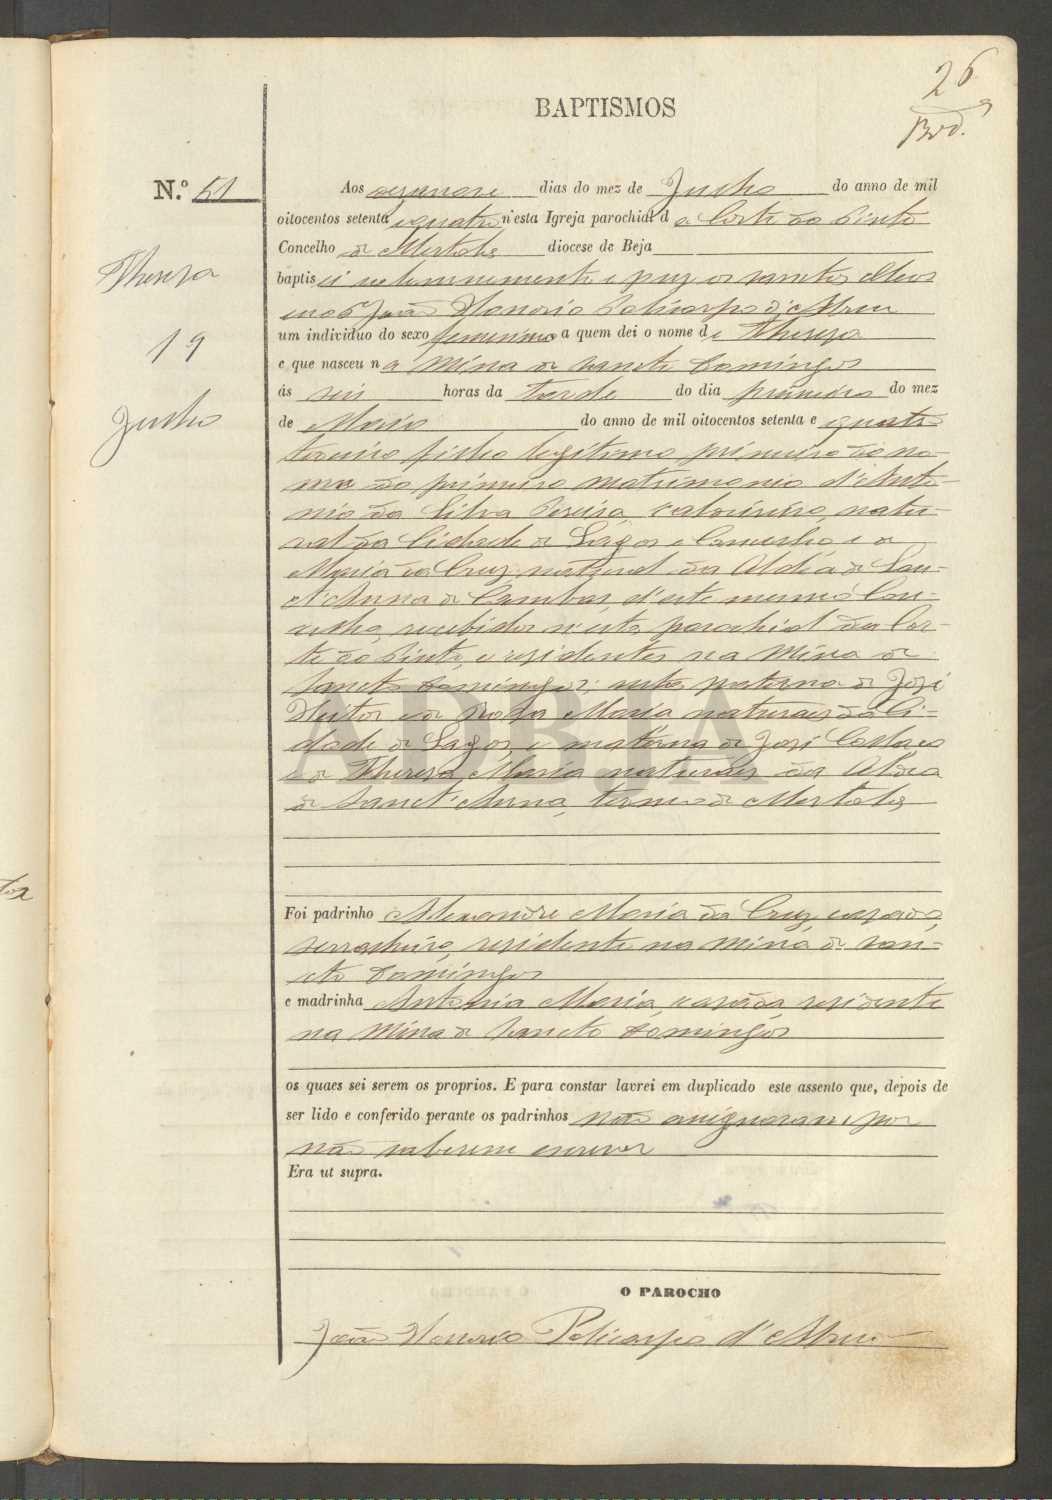 26
BAPTISMOS
N.º 51
Aos desanove dias do mez de Junho do anno de mil
oitocentos setenta e quatro n'esta Igreja parochial d a Corte do Pinto
Concelho de Mertola diocese de Beja
baptis ei solemnemente e puz os sanctos Oleos
eu João Honorio Policarpo d'Abreu
um individuo do sexo femenino a quem dei o nome d e Thereza
e que nasceu n a Mina de Sancto Domingos
ás seis horas da tarde do dia primeiro do mez
de Maio do anno de mil oitocentos setenta e quatro
terceiro filho legitimo primeiro do no-
me do primeiro matrimonio d'Anto-
nio da Silva Pereira, natu-
ral da Cidade de Lagos e Concelho e de
Maria da Cruz, natural da Aldêa de San-
ct'Anna de Cambas, d'este mesmo Con-
celho, recebidos n'esta parochial da Cor-
te do Pinto, e residentes na Mina de
Sancto Domingos; neta paterna de José
Heitor e de Rosa Maria naturaes da Ci-
dade de Lagos, e materna de José Collaço
e de Thereza Maria naturaes da Aldêa
de Sanct'Anna, termo de Mertola
Foi padrinho Alexandre Maria da Cruz, casado,
serralheiro, residente na Mina de San-
cto Domingos
e madrinha Antonia Maria, casada, residente
na Mina de Sancto Domingos
os quaes sei serem os proprios. E para constar lavrei em duplicado este assento que, depois de
ser lido e conferido perante os padrinhos não assignaram por
não saberem escrever
Era ut supra.
O PAROCHO
João Honorio Policarpo d'Abreu
Thereza
19
Junho
ADBJA